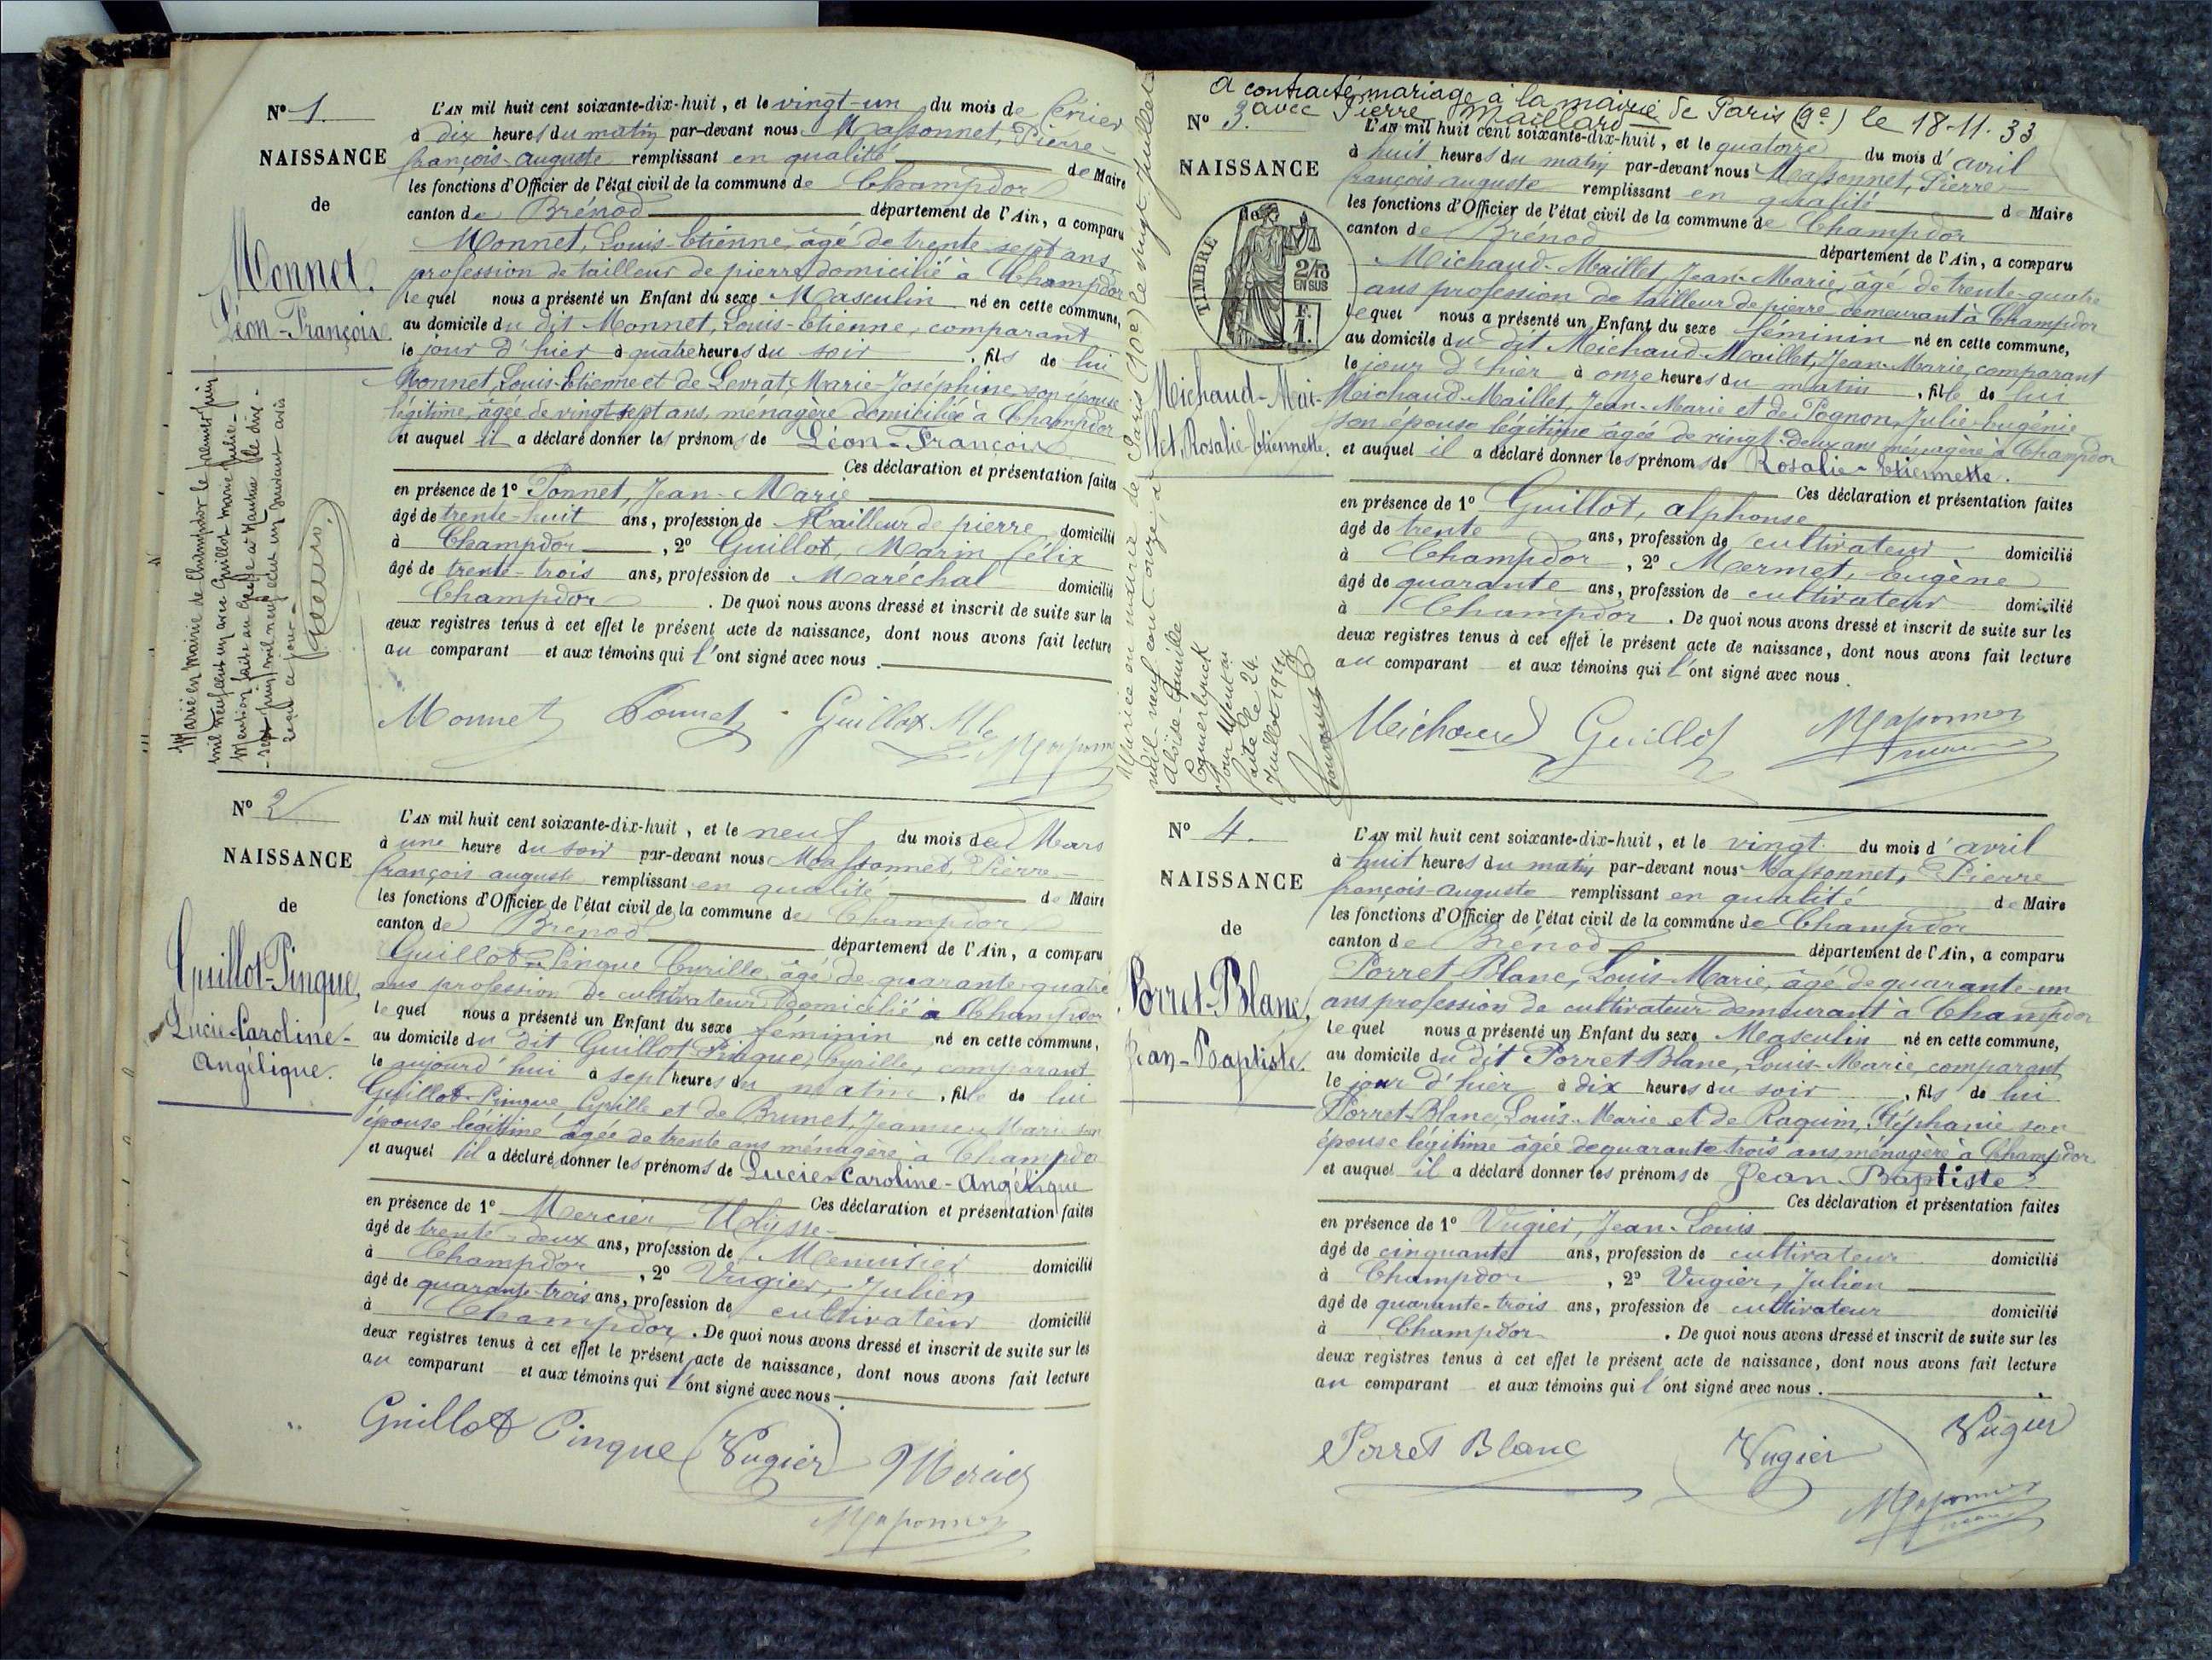 N° 1.
NAISSANCE
de
Monnet.
Léon-François
L'AN mil huit cent soixante-dix-huit, et le vingt-un du mois de Février
à dix heures du matin par-devant nous Massonnet, Pierre-
françois-auguste remplissant en qualité de Maire
les fonctions d'Officier de l'état civil de la commune de Champdor
canton de Brénod département de l'Ain, a comparu
Monnet, Louis-Etienne, âgé de trente-sept ans
profession de tailleur de pierre, domicilié à Champdor
lequel nous a présenté un Enfant du sexe Masculin né en cette commune,
au domicile du dit Monnet, Louis-Etienne, comparant
le jour d'hier à quatre heures du soir, fils de lui
Monnet, Louis-Etienne et de Levrat, Marie-Joséphine, son épouse
légitime, âgée de vingt-sept ans, ménagère domiciliée à Champdor
et auquel il a déclaré donner les prénoms de Léon-François
Ces déclaration et présentation faites
en présence de 1° Ponnet, Jean-Marie
âgé de trente-huit ans, profession de tailleur de pierre domicilié
à Champdor, 2° Guillot, Marin félix
âgé de trente-trois ans, profession de Maréchal domicilié
Champdor. De quoi nous avons dressé et inscrit de suite sur les
deux registres tenus à cet effet le présent acte de naissance, dont nous avons fait lecture
au comparant et aux témoins qui l'ont signé avec nous.
Monnet Ponnet Guillot Massonnet
Marié en Mairie de Champdor le premier juin
mil neuf cent un avec Guillot Marie Julie-
Mention faite au Greffe à Nantua le dix-
-sept juin mil neuf cent un suivant avis
reçu ce jour-
N° 2
NAISSANCE
de
Guillot-Pingue,
Lucie-Caroline-
Angélique.
L'AN mil huit cent soixante-dix-huit, et le neuf du mois de Mars
à une heure du soir par-devant nous Massonnet, Pierre-
françois auguste remplissant en qualité de Maire
les fonctions d'Officier de l'état civil de la commune de Champdor
canton de Brénod département de l'Ain, a comparu
Guillot-Pingue Cyrille, âgé de quarante-quatre
ans profession de cultivateur domicilié à Champdor
lequel nous a présenté un Enfant du sexe féminin né en cette commune,
au domicile du dit Guillot Pingue, Cyrille, comparant
le aujourd'hui à sept heures du matin, fille de lui
Guillot-Pingue Cyrille et de Brunet, Jeanne Marie son
épouse légitime âgée de trente ans ménagère à Champdor
et auquel il a déclaré donner les prénoms de Lucie-Caroline-Angélique
Ces déclaration et présentation faites
en présence de 1° Mercier Ulysse
âgé de trente-deux ans, profession de Menuisier domicilié
à Champdor, 2° Vugier, Julien
âgé de quarante-trois ans, profession de cultivateur domicilié
à Champdor. De quoi nous avons dressé et inscrit de suite sur les
deux registres tenus à cet effet le présent acte de naissance, dont nous avons fait lecture
au comparant et aux témoins qui l'ont signé avec nous.
Guillot Pingue Vugier Mercier
Massonnet
A contracté mariage à la mairie de Paris (9e) le 18-11-33
avec Pierre Maillard
N° 3.
NAISSANCE
de
TIMBRE
2/10
EN SUS
F.
1.
Michaud-Mai-
llet, Rosalie-Etiennette.
L'AN mil huit cent soixante-dix-huit, et le quatorze du mois d'avril
à huit heures du matin par-devant nous Massonnet, Pierre
françois auguste remplissant en qualité de Maire
les fonctions d'Officier de l'état civil de la commune de Champdor
canton de Brénod département de l'Ain, a comparu
Michaud-Maillet, Jean-Marie, âgé de trente-quatre
ans profession de tailleur de pierre demeurant à Champdor
lequel nous a présenté un Enfant du sexe féminin né en cette commune,
au domicile du dit Michaud-Maillet, Jean-Marie, comparant
le jour d'hier à onze heures du matin, fille de lui
Michaud-Maillet, Jean-Marie et de Pognon, Julie Eugénie
son épouse légitime âgée de vingt-deux ans ménagère à Champdor
et auquel il a déclaré donner les prénoms de Rosalie-Etiennette.
Ces déclaration et présentation faites
en présence de 1° Guillot, alphonse
âgé de trente ans, profession de cultivateur domicilié
à Champdor, 2° Mermet, Eugène
âgé de quarante ans, profession de cultivateur domicilié
à Champdor. De quoi nous avons dressé et inscrit de suite sur les
deux registres tenus à cet effet le présent acte de naissance, dont nous avons fait lecture
au comparant et aux témoins qui l'ont signé avec nous.
Michaud Guillot Massonnet
Mariée en mairie de Paris (10e) le vingt Juillet
mil-neuf cent onze, à
Aloïse-Camille
Juillet 1911
N° 4.
NAISSANCE
de
Porret-Blanc,
Jean-Baptiste.
L'AN mil huit cent soixante-dix-huit, et le vingt du mois d'avril
à huit heures du matin par-devant nous Massonnet, Pierre
françois-auguste remplissant en qualité de Maire
les fonctions d'Officier de l'état civil de la commune de Champdor
canton de Brénod département de l'Ain, a comparu
Porret-Blanc, Louis-Marie, âgé de quarante-un
ans profession de cultivateur demeurant à Champdor
lequel nous a présenté un Enfant du sexe Masculin né en cette commune,
au domicile du dit Porret Blanc, Louis-Marie, comparant
le jour d'hier à dix heures du soir, fils de lui
Porret-Blanc, Louis-Marie et de Raquin, Stéphanie son
épouse légitime âgée de quarante-trois ans, ménagère à Champdor
et auquel il a déclaré donner les prénoms de Jean-Baptiste
Ces déclaration et présentation faites
en présence de 1° Vugier, Jean-Louis
âgé de cinquante ans, profession de cultivateur domicilié
à Champdor, 2° Vugier, Julien
âgé de quarante-trois ans, profession de cultivateur domicilié
à Champdor. De quoi nous avons dressé et inscrit de suite sur les
deux registres tenus à cet effet le présent acte de naissance, dont nous avons fait lecture
au comparant et aux témoins qui l'ont signé avec nous.
Porret Blanc Vugier Vugier
Massonnet